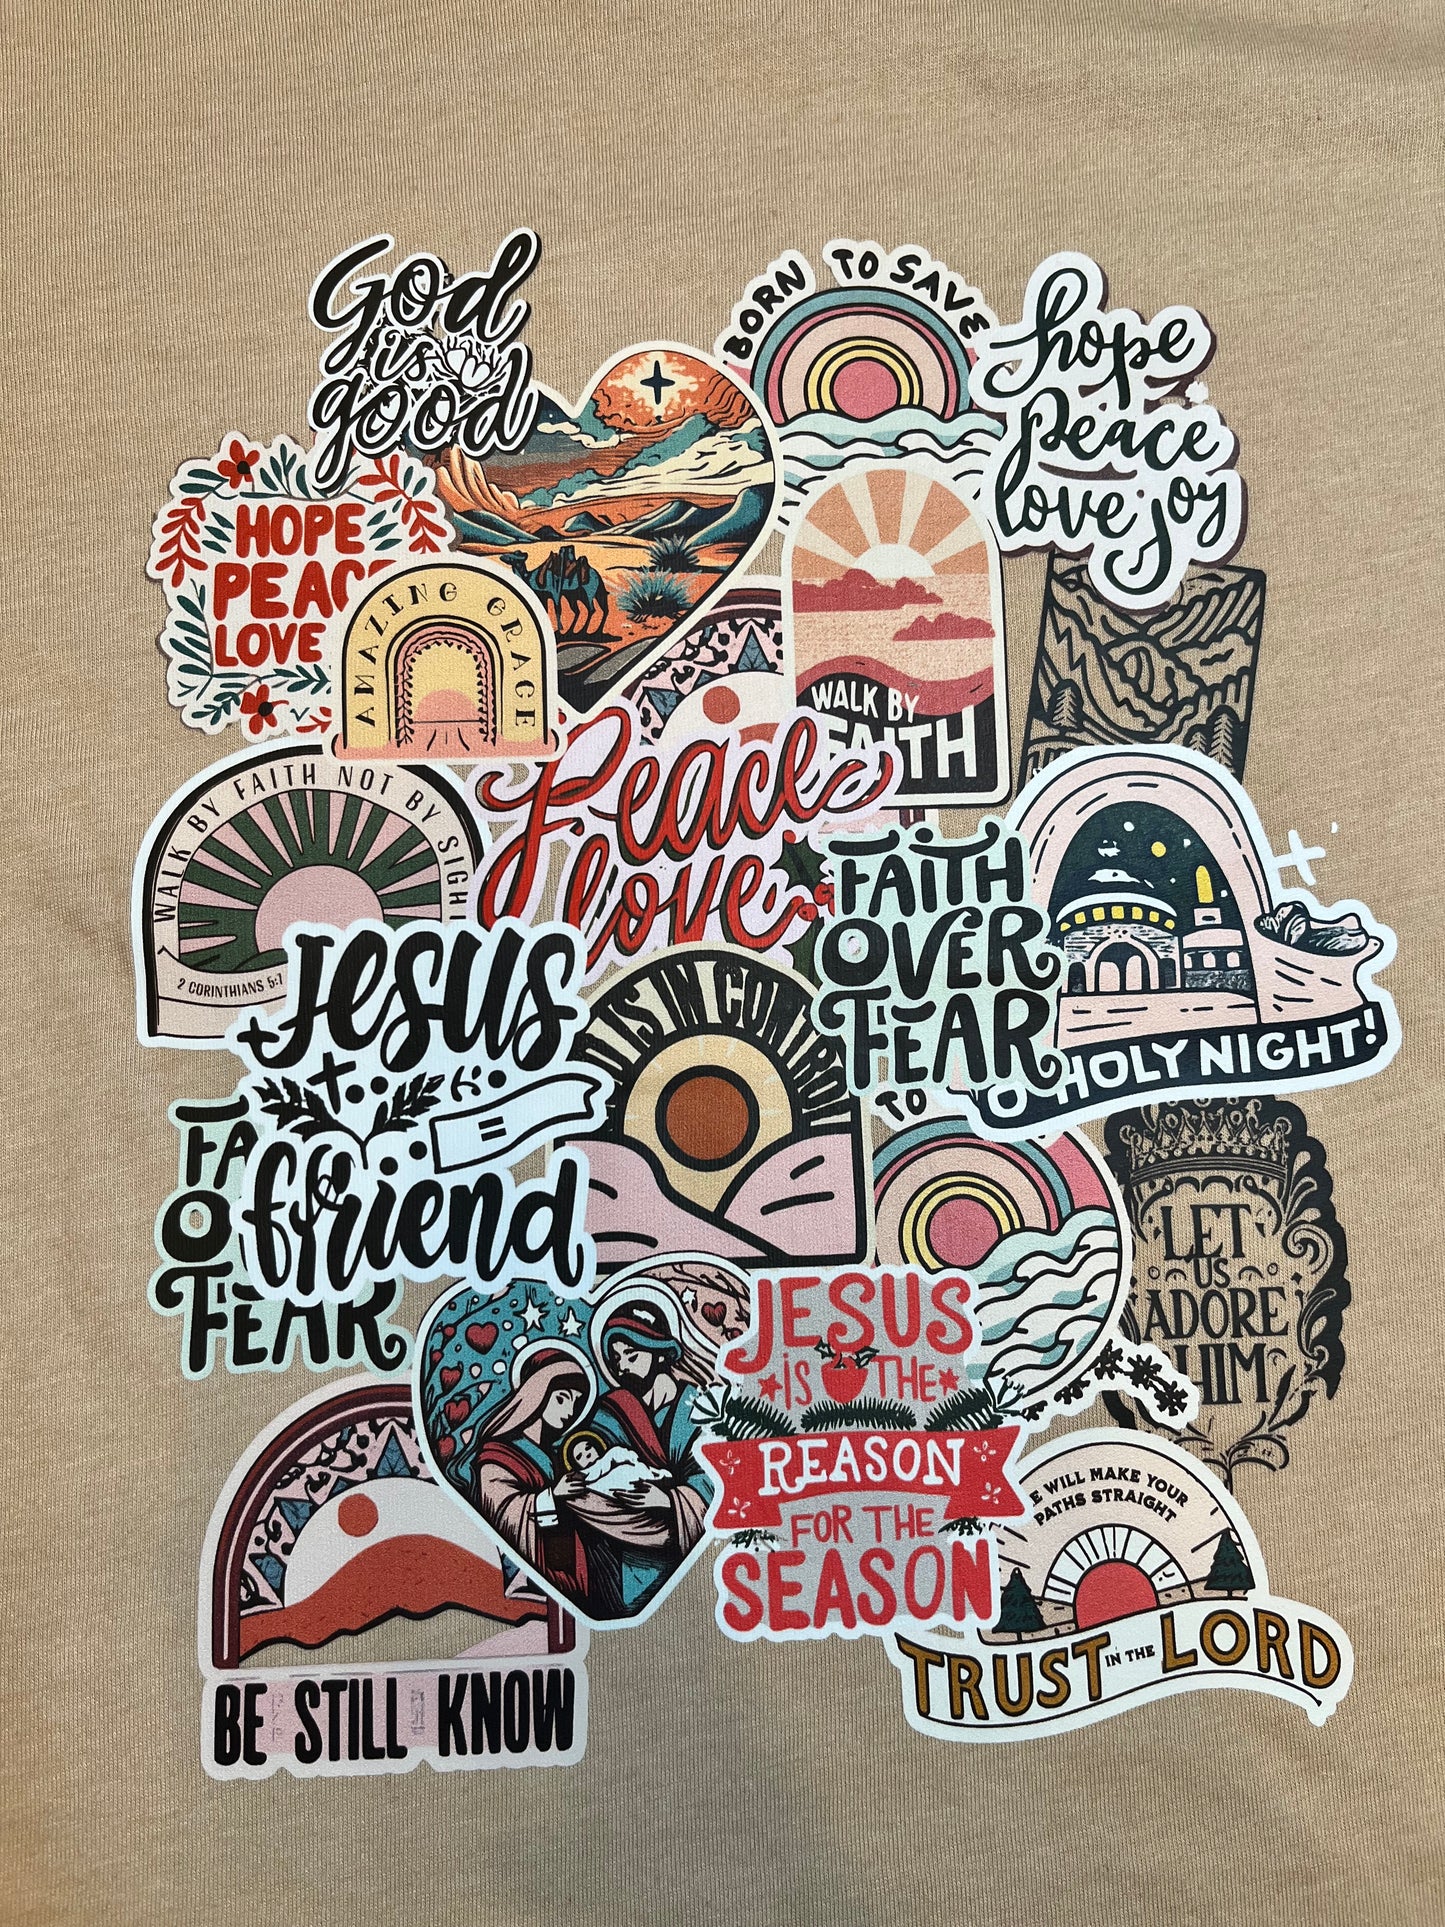 God
is
good
BORN TO SAVE
hope
peace
love joy
HOPE
PEAC
LOVE
AMAZING GRACE
WALK BY
FAITH
WALK BY FAITH NOT BY SIGH
2 CORINTHIANS 5:7
Peace
love
FAITH
OVER
FEAR
O HOLY NIGHT!
Jesus
friend
IS IN CONTROL
TO
FA
O
FEAR
LET
US
ADORE
HIM
JESUS
IS THE
REASON
FOR THE
SEASON
E WILL MAKE YOUR
PATHS STRAIGHT
TRUST IN THE LORD
BE STILL KNOW